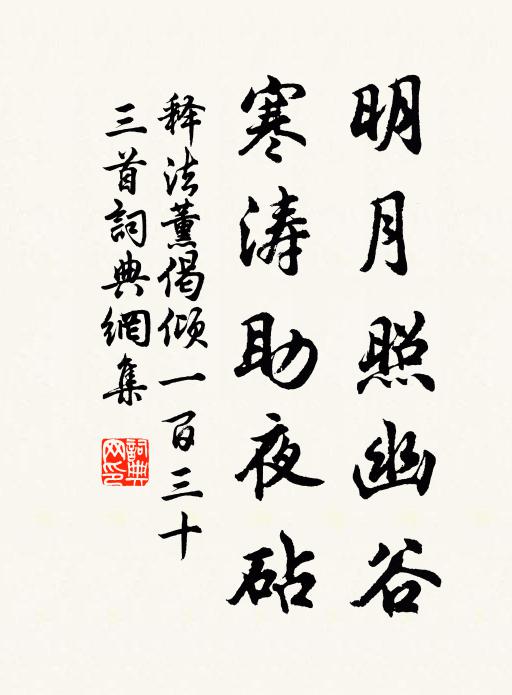 明月照幽谷
寒涛助夜砧
释法薰偈倾一百三十
三首詞典網集
詞典
网印